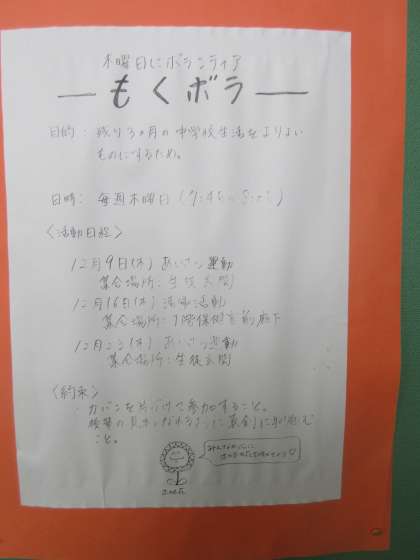 木曜日にボランティア
もくボラ
目的: 残り3ヵ月の中学校生活をよりよい
ものにするため。
日時: 毎週木曜日 (7:45~8:00)
〈活動日程〉
12月9日(木) あいさつ運動
集合場所: 生徒玄関
12月16日(木) 清掃活動
集合場所: 1階保健室前廊下
12月23日(木) あいさつ運動
集合場所: 生徒玄関
〈約束〉
・カバンを片づけて参加すること。
・後輩の見本になれるように真剣に取り組む
こと。
みんなの